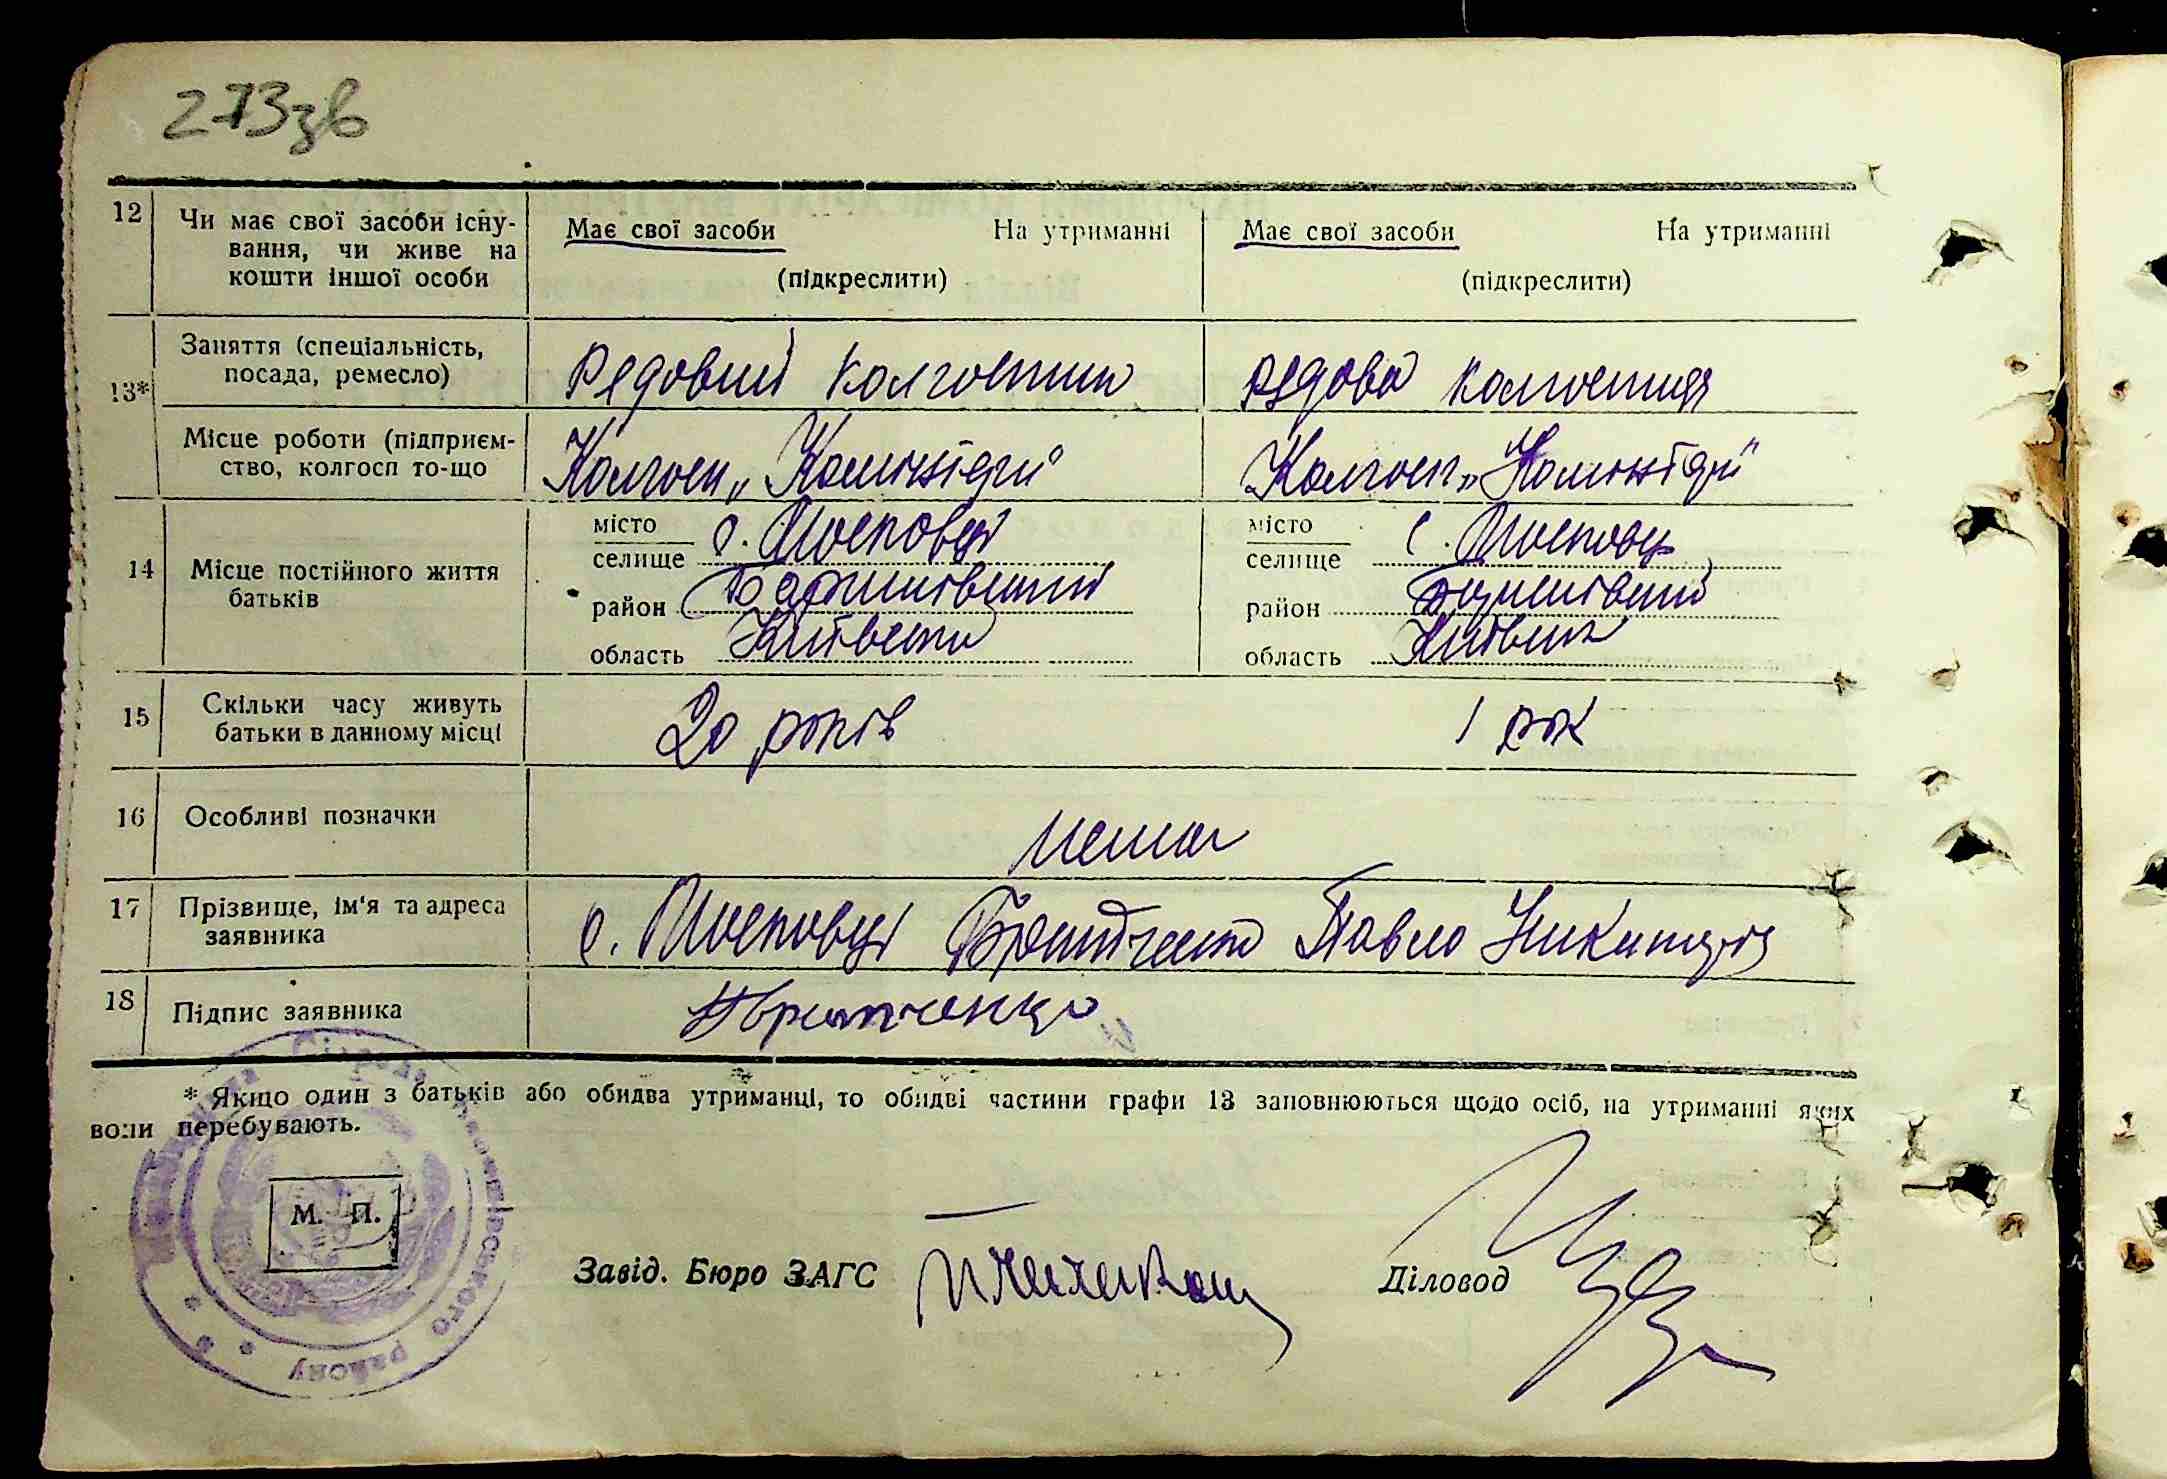 273зв
12 Чи має свої засоби існу- Має свої засоби На утриманні Має свої засоби На утриманні
вання, чи живе на
кошти іншої особи (підкреслити) (підкреслити)
13* Заняття (спеціальність, посада, ремесло) Рядовий колгоспник рядова колгоспниця
Місце роботи (підприєм-
ство, колгосп то-що Колгосп „Комінтерн" Колгосп „Комінтерн"
14 Місце постійного життя батьків
місто с. місто с.
селище селище
район район
область Київська область Київська
15 Скільки часу живуть
батьки в данному місці 20 років 1 рок
16 Особливі позначки нема
17 Прізвище, ім'я та адреса
заявника с. Павло Никитович
18 Підпис заявника
* Якщо один з батьків або обидва утриманці, то обидві частини графи 13 заповнюються щодо осіб, на утриманні яких
вони перебувають.
М. П.
району
Завід. Бюро ЗАГС Діловод